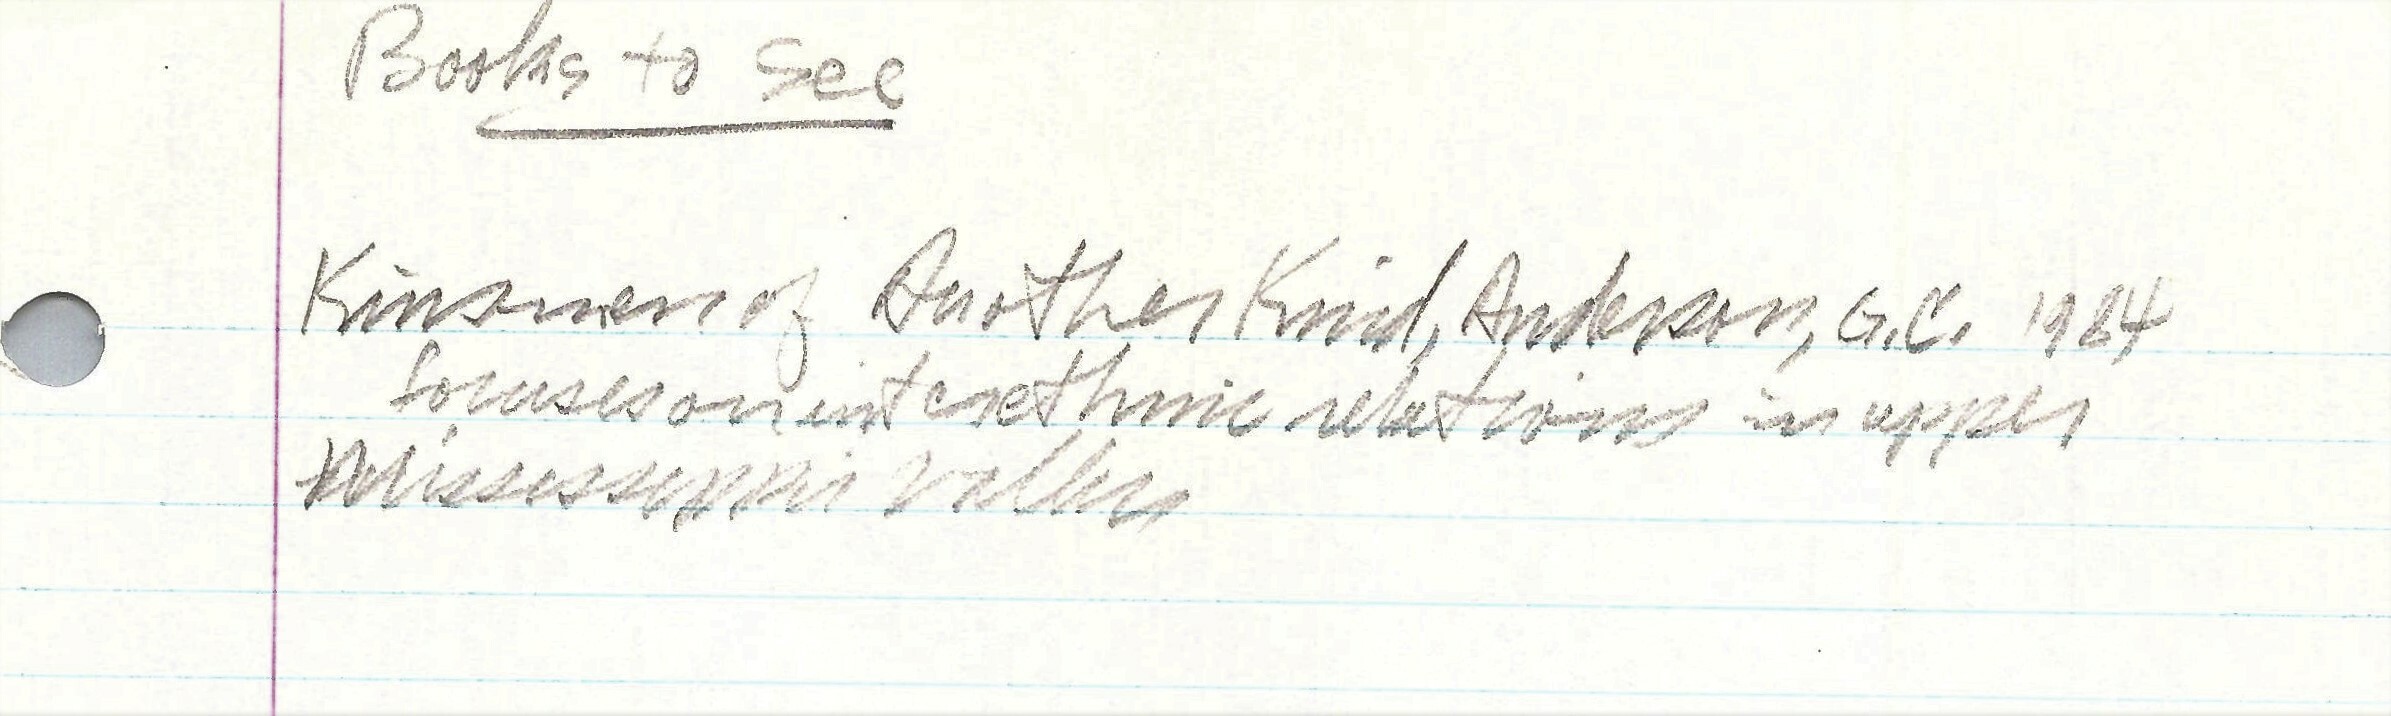 Books to see
Kinsmen of Another Kind, Anderson, G.C. 1984
focuses on interethnic relations in upper
Mississippi Valley